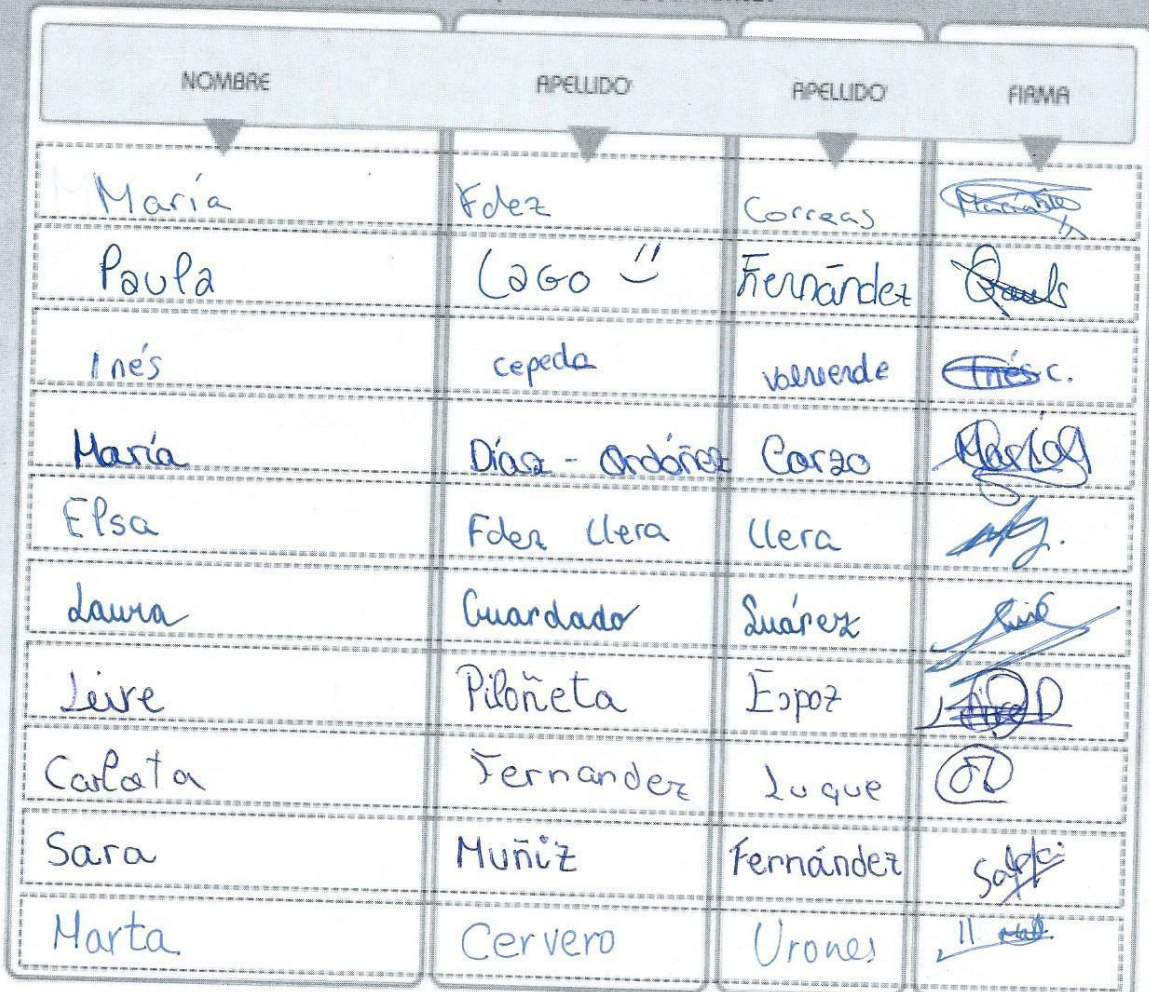 NOMBRE APELLIDO APELLIDO FIRMA
María Fdez Correas
Paula Lago Fernández Paula
Inés cepeda valverde Inés c.
María Díaz - Ordóñez Corzo María
Elsa Fdez Llera Llera
Laura Guardado Suárez
Leire Piloñeta Espoz Leire
Carlota Fernandez Luque
Sara Muñiz Fernández
Marta Cervero Urones